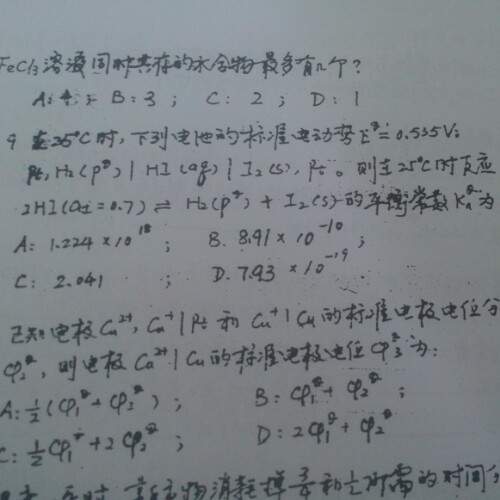 FeCl3溶液同时共存的水合物最多有几个?
A: 4; B: 3; C: 2; D: 1
9 在25°C时,下列电池的标准电动势E^θ=0.535V:
Pt, H2(p^θ) | HI(aq) | I2(s), Pt。则在25°C时反应
2HI(a±=0.7) ⇌ H2(p^θ) + I2(s)的平衡常数Ka^θ为
A: 1.224×10^18; B. 8.91×10^-10;
C: 2.041; D. 7.93×10^-19
已知电极Cu2+, Cu+|Pt和Cu+|Cu的标准电极电位分
φ2^θ,则电极Cu2+|Cu的标准电极电位φ3^θ为:
A: 1/2(φ1^θ+φ2^θ); B: φ1^θ+φ2^θ;
C: 1/2φ1^θ+2φ2^θ; D: 2φ1^θ+φ2^θ
反应物消耗掉3/4和1/2所需的时间